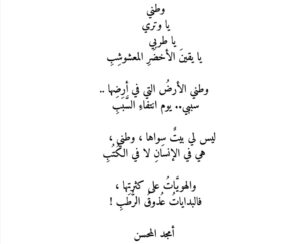 وطني
يا وتري
يا طربي
يا يقينَ الأخضرِ المعشوشِبِ
وطني الأرضُ التي في أرضِها ..
سببي.. يوم انتفاءِ السَّبَبِ
ليس لي بيتٌ سواها ، وطني ،
هي في الإنسانِ لا في الكُتُبِ
والهويَّاتُ على كثرتِها ،
فالبداياتُ عُذوقُ الرُّطَبِ !
أمجد المحسن